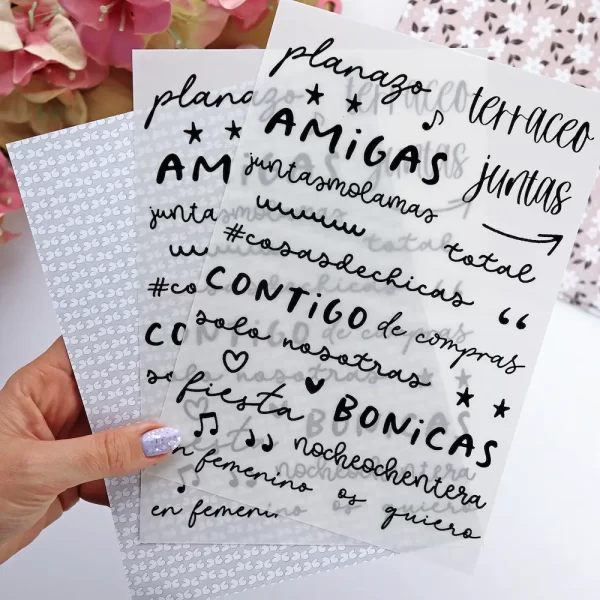 planazo
terraceo
AMiGAS
juntas
juntasmolamas
total
#cosasdechicas
CONTiGO de compras
solo nosotras
fiesta BONiCAS
nocheochentera
n femenino os quiero
plana
AM
junta
#co
CO
en femenin